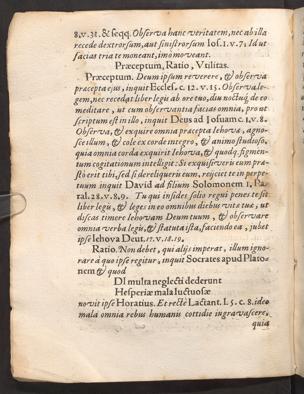 8.v.31. & seqq. Observa hanc veritatem, nec ab illa
recede dextrorsum, aut sinistrorsum Ios. 1. v. 7. Id ut
facias tria te moneant, imò moveant.
Præceptum, Ratio, Vtilitas.
Præceptum. Deum ipsum reverere, & observa
præcepta ejus, inquit Eccles. c. 12. v. 15. Observa le-
gem, nec recedat liber legis ab ore tuo, diu noctuq́; de eo
meditare, ut cum observantia facias omnia, prout
scriptum est in illo, inquit Deus ad Josuam c. 1. v. 8.
Observa, & exquire omnia præcepta Iehovæ, agno-
sce illum, & cole ex corde integro, & animo studioso,
quia omnia corda exquirit Iehova, & quodq́; figmen-
tum cogitationum intelligit: Si exquisiveris eum præ-
stò erit tibi, sed si dereliqueris eum, rejiciet te in perpe-
tuum inquit David ad filium Solomonem 1. Pa-
ral. 28. v. 8, 9. Tu qui insides solio regni penes te sit
liber legis, & leges in eo omnibus diebus vitæ tuæ, ut
discas timere Iehovam Deum tuum, & observare
omnia verba legis, & statuta ista, faciendo ea, jubet
ipse Iehova Deut. 17. v. 18. 19.
Ratio. Non debet, qui alijs imperat, illum igno-
rare à quo ipse regitur, inquit Socrates apud Plato-
nem & quod
DI multa neglecti dederunt
Hesperiæ mala luctuosæ
novit ipse Horatius. Et rectè Lactant. l. 5. c. 8. ideo
mala omnia rebus humanis cottidie ingravescere,
quia